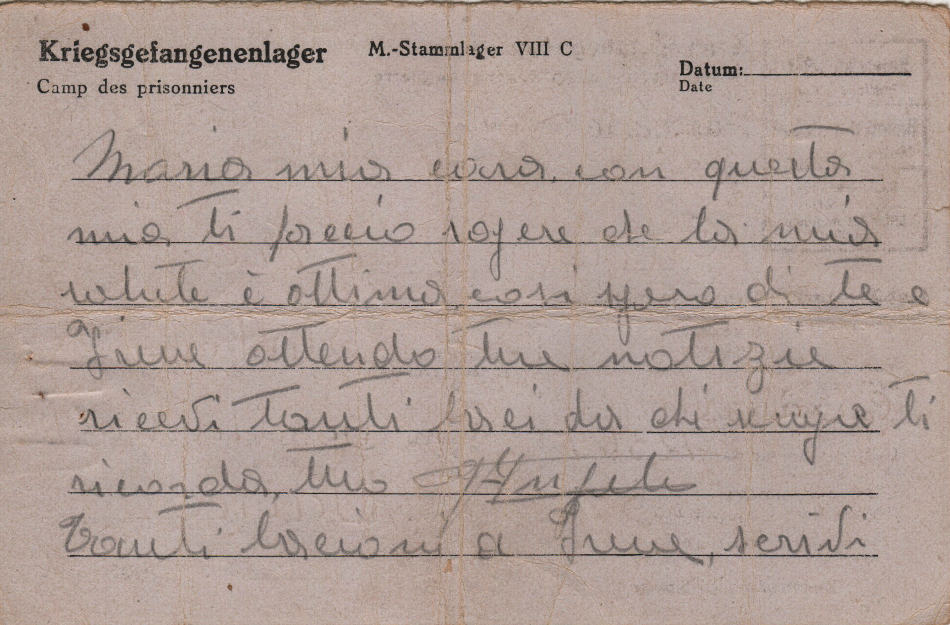 Kriegsgefangenenlager M.-Stammlager VIII C
Camp des prisonniers
Datum:
Date
Maria mia cara, con questa
mia, ti faccio sapere che la mia
salute è ottima, così spero di te e
Irene attendo tue notizie
ricevi tanti baci da chi sempre ti
ricorda, tuo
Tanti bacioni a Irene, scrivi